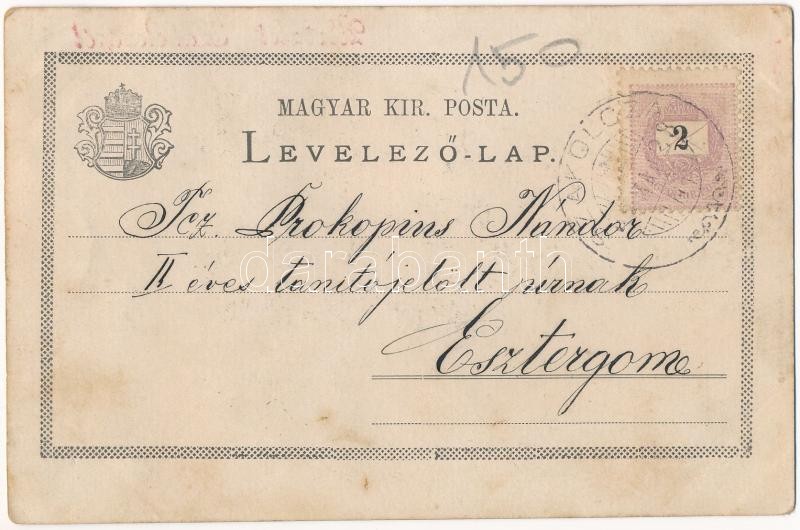 150
MAGYAR KIR. POSTA.
LEVELEZŐ-LAP.
2
Tcz. Prokopius Nándor
II éves tanítójelölt úrnak
Esztergom
darabanth